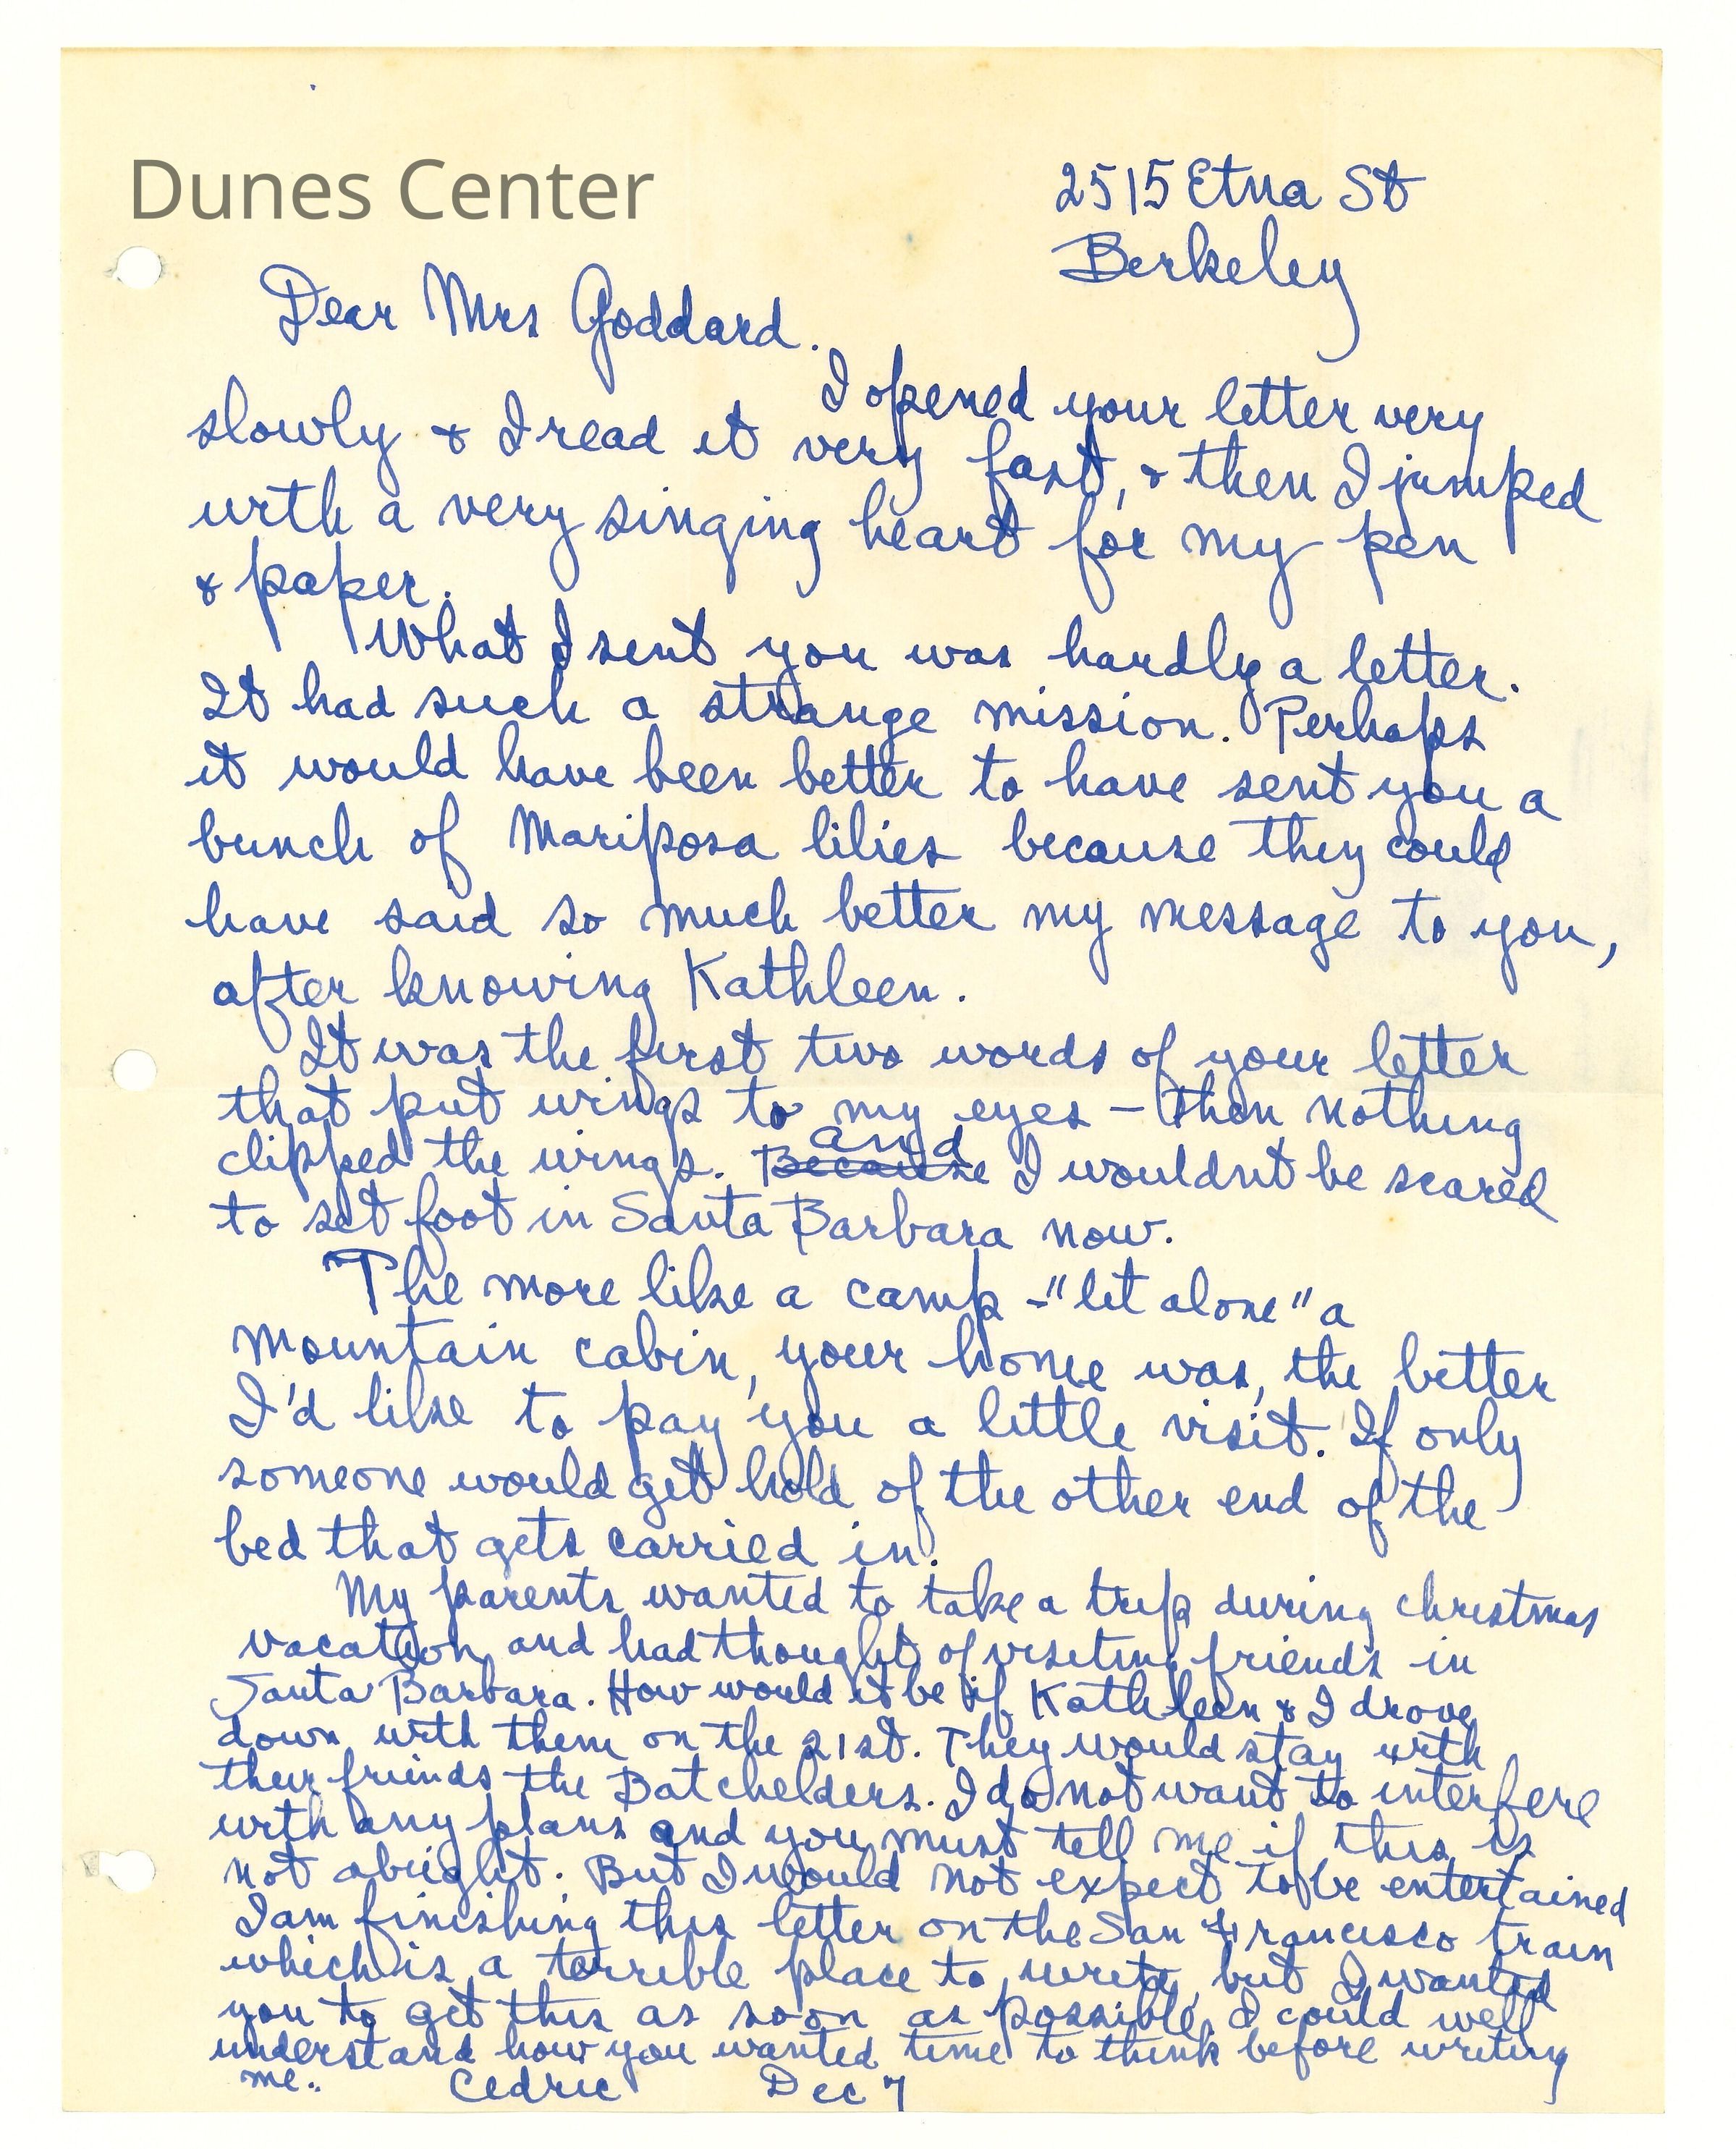 Dunes Center
2515 Etna St
Berkeley
Dear Mrs Goddard.
I opened your letter very
slowly & I read it very fast, & then I jumped
with a very singing heart for my pen
& paper.
What I sent you was hardly a letter.
It had such a strange mission. Perhaps
it would have been better to have sent you a
bunch of Mariposa lilies because they could
have said so much better my message to you,
after knowing Kathleen.
It was the first two words of your letter
that put wings to my eyes – then nothing
clipped the wings. Because and I wouldnt be scared
to set foot in Santa Barbara now.
The more like a camp – "let alone" a
mountain cabin, your home was, the better
I'd like to pay you a little visit. If only
someone would get hold of the other end of the
bed that gets carried in.
My parents wanted to take a trip during christmas
vacation and had thought of visiting friends in
Santa Barbara. How would it be if Kathleen & I drove
down with them on the 21st. They would stay with
their friends the Batchelders. I do not want to interfere
with any plans and you must tell me if this is
not alright. But I would not expect to be entertained
I am finishing this letter on the San Francisco train
which is a terrible place to write, but I wanted
you to get this as soon as possible. I could well
understand how you wanted time to think before writing
me.. Cedric Dec 7